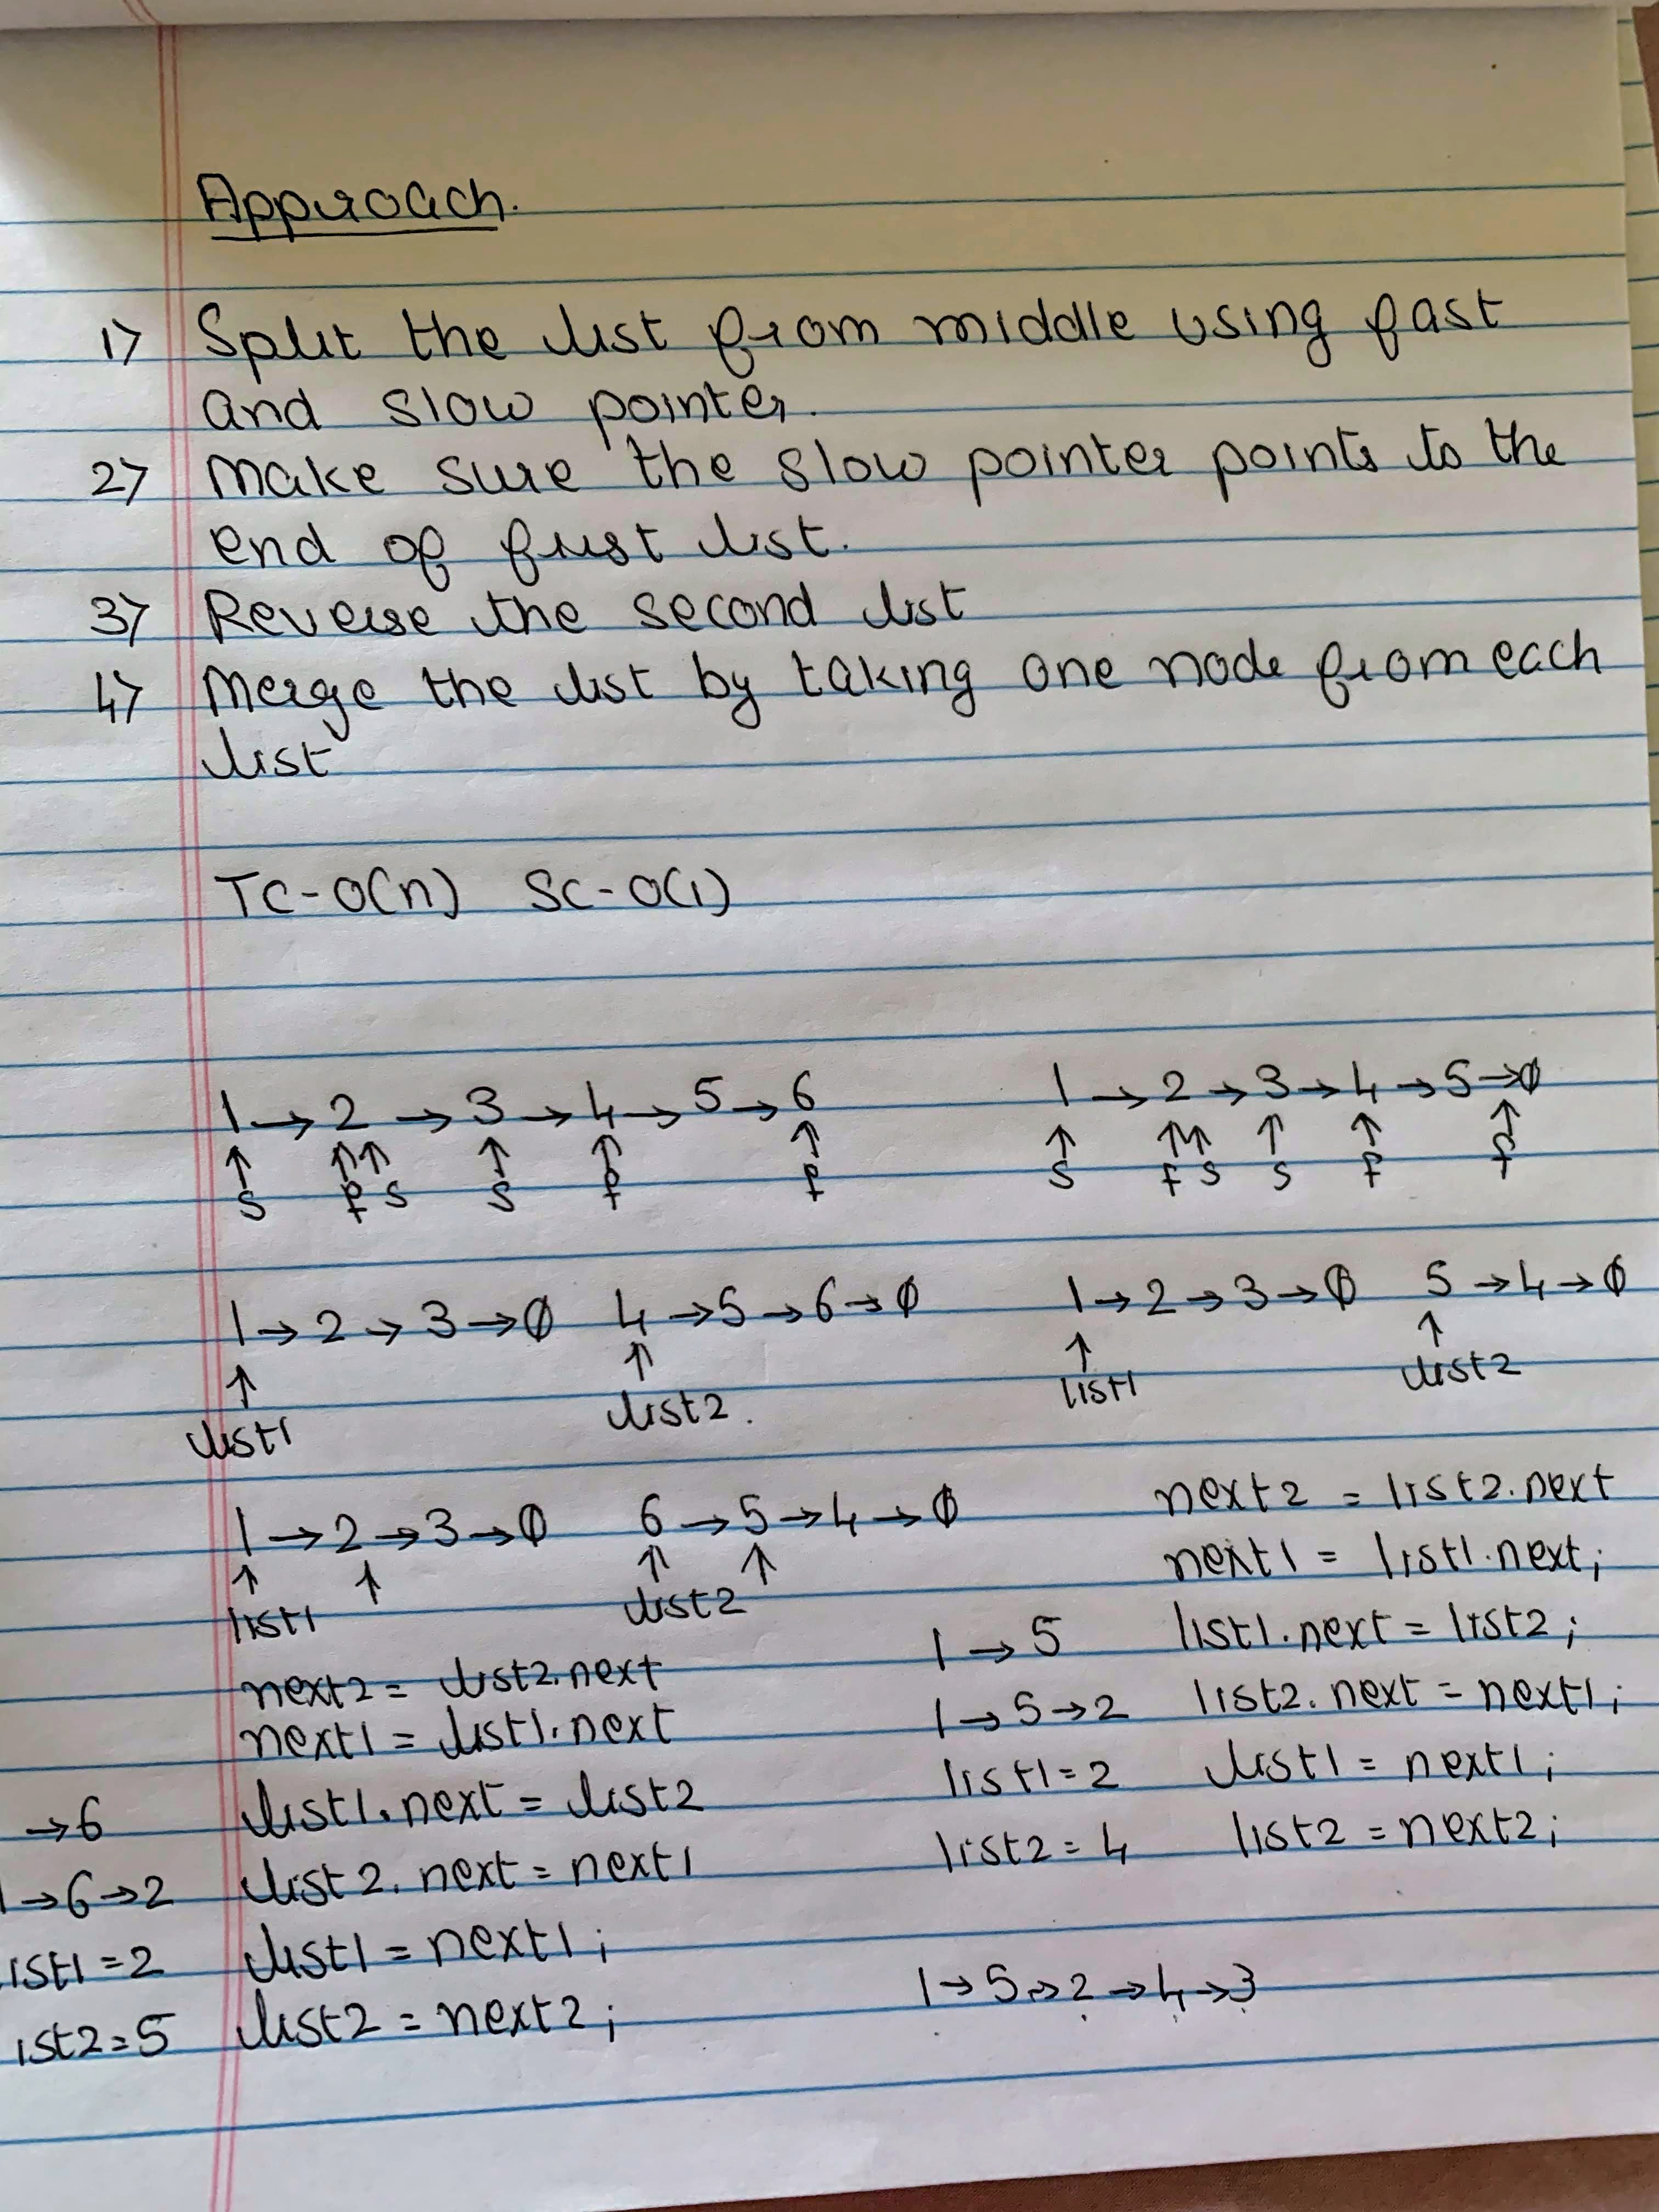 Approach.
1) Split the list from middle using fast
and slow pointer.
2) Make sure the slow pointer points to the
end of first list.
3) Reverse the second list
4) Merge the list by taking one node from each
list
TC-O(n) SC-O(1)
1 → 2 → 3 → 4 → 5 → 6
↑ ↑↑ ↑ ↑ ↑
s f s s f f
1 → 2 → 3 → 4 → 5 → ∅
↑ ↑↑ ↑ ↑ ↑
s f s s f f
1 → 2 → 3 → ∅ 4 → 5 → 6 → ∅
↑ ↑
list1 list2.
1 → 2 → 3 → ∅ 5 → 4 → ∅
↑ ↑
list1 list2
1 → 2 → 3 → ∅ 6 → 5 → 4 → ∅
↑ ↑ ↑ ↑
list1 list2
next2 = list2.next
next1 = list1.next
→ 6 list1.next = list2
1 → 6 → 2 list2.next = next1
ist1 = 2 list1 = next1;
ist2 = 5 list2 = next2;
next2 = list2.next
next1 = list1.next;
1 → 5 list1.next = list2;
1 → 5 → 2 list2.next = next1;
list1 = 2 list1 = next1;
list2 = 4 list2 = next2;
1 → 5 → 2 → 4 → 3